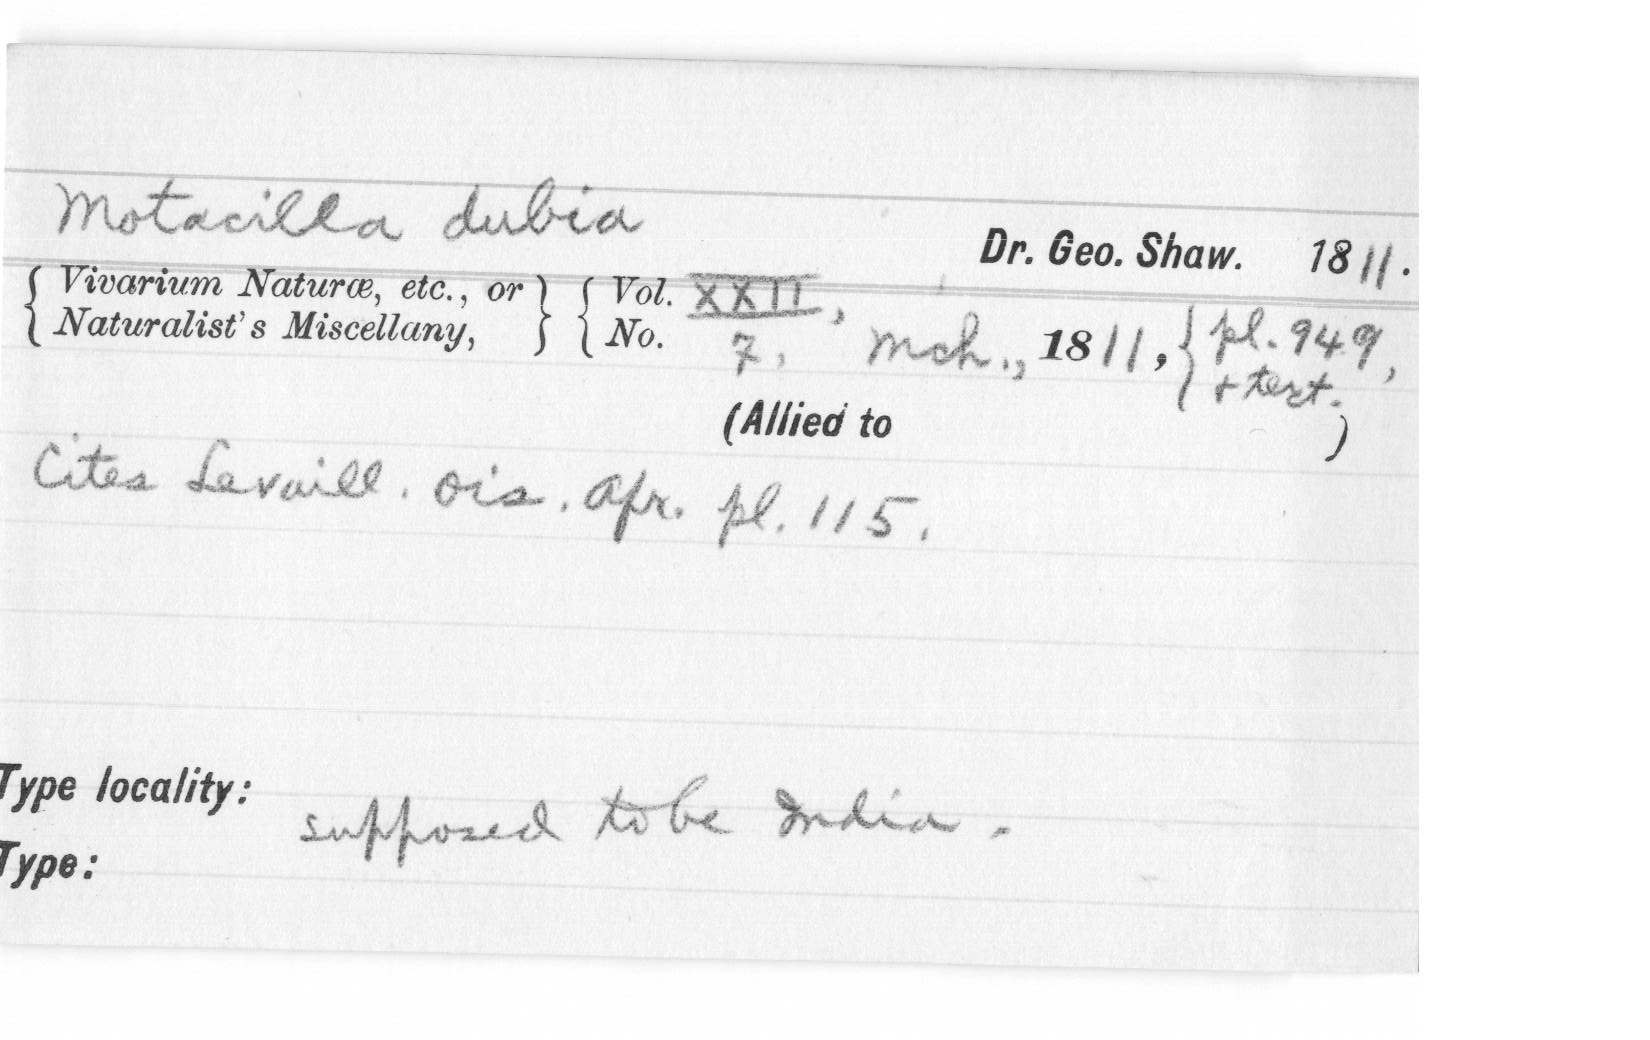 Motacilla dubia
Dr. Geo. Shaw. 1811.
{ Vivarium Naturæ, etc., or } { Vol. XXII,
{ Naturalist's Miscellany, } { No. 7, Mch., 1811, { pl. 949,
+ text.
(Allied to )
Cites Levaill. Ois. Afr. pl. 115.
Type locality: supposed to be India.
Type: